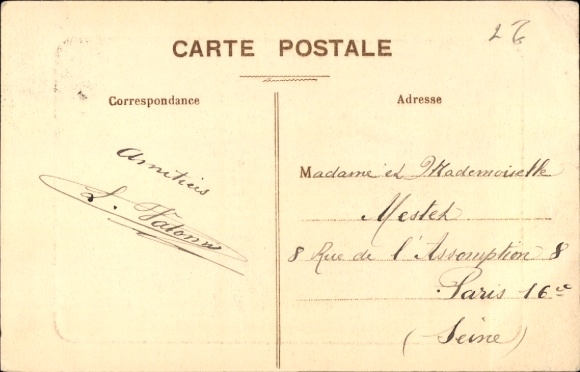 CARTE POSTALE
Correspondance
Adresse
Amitiés
L.
Madame et Mademoiselle
8 Rue de l'Assomption 8
Paris 16e
(Seine)